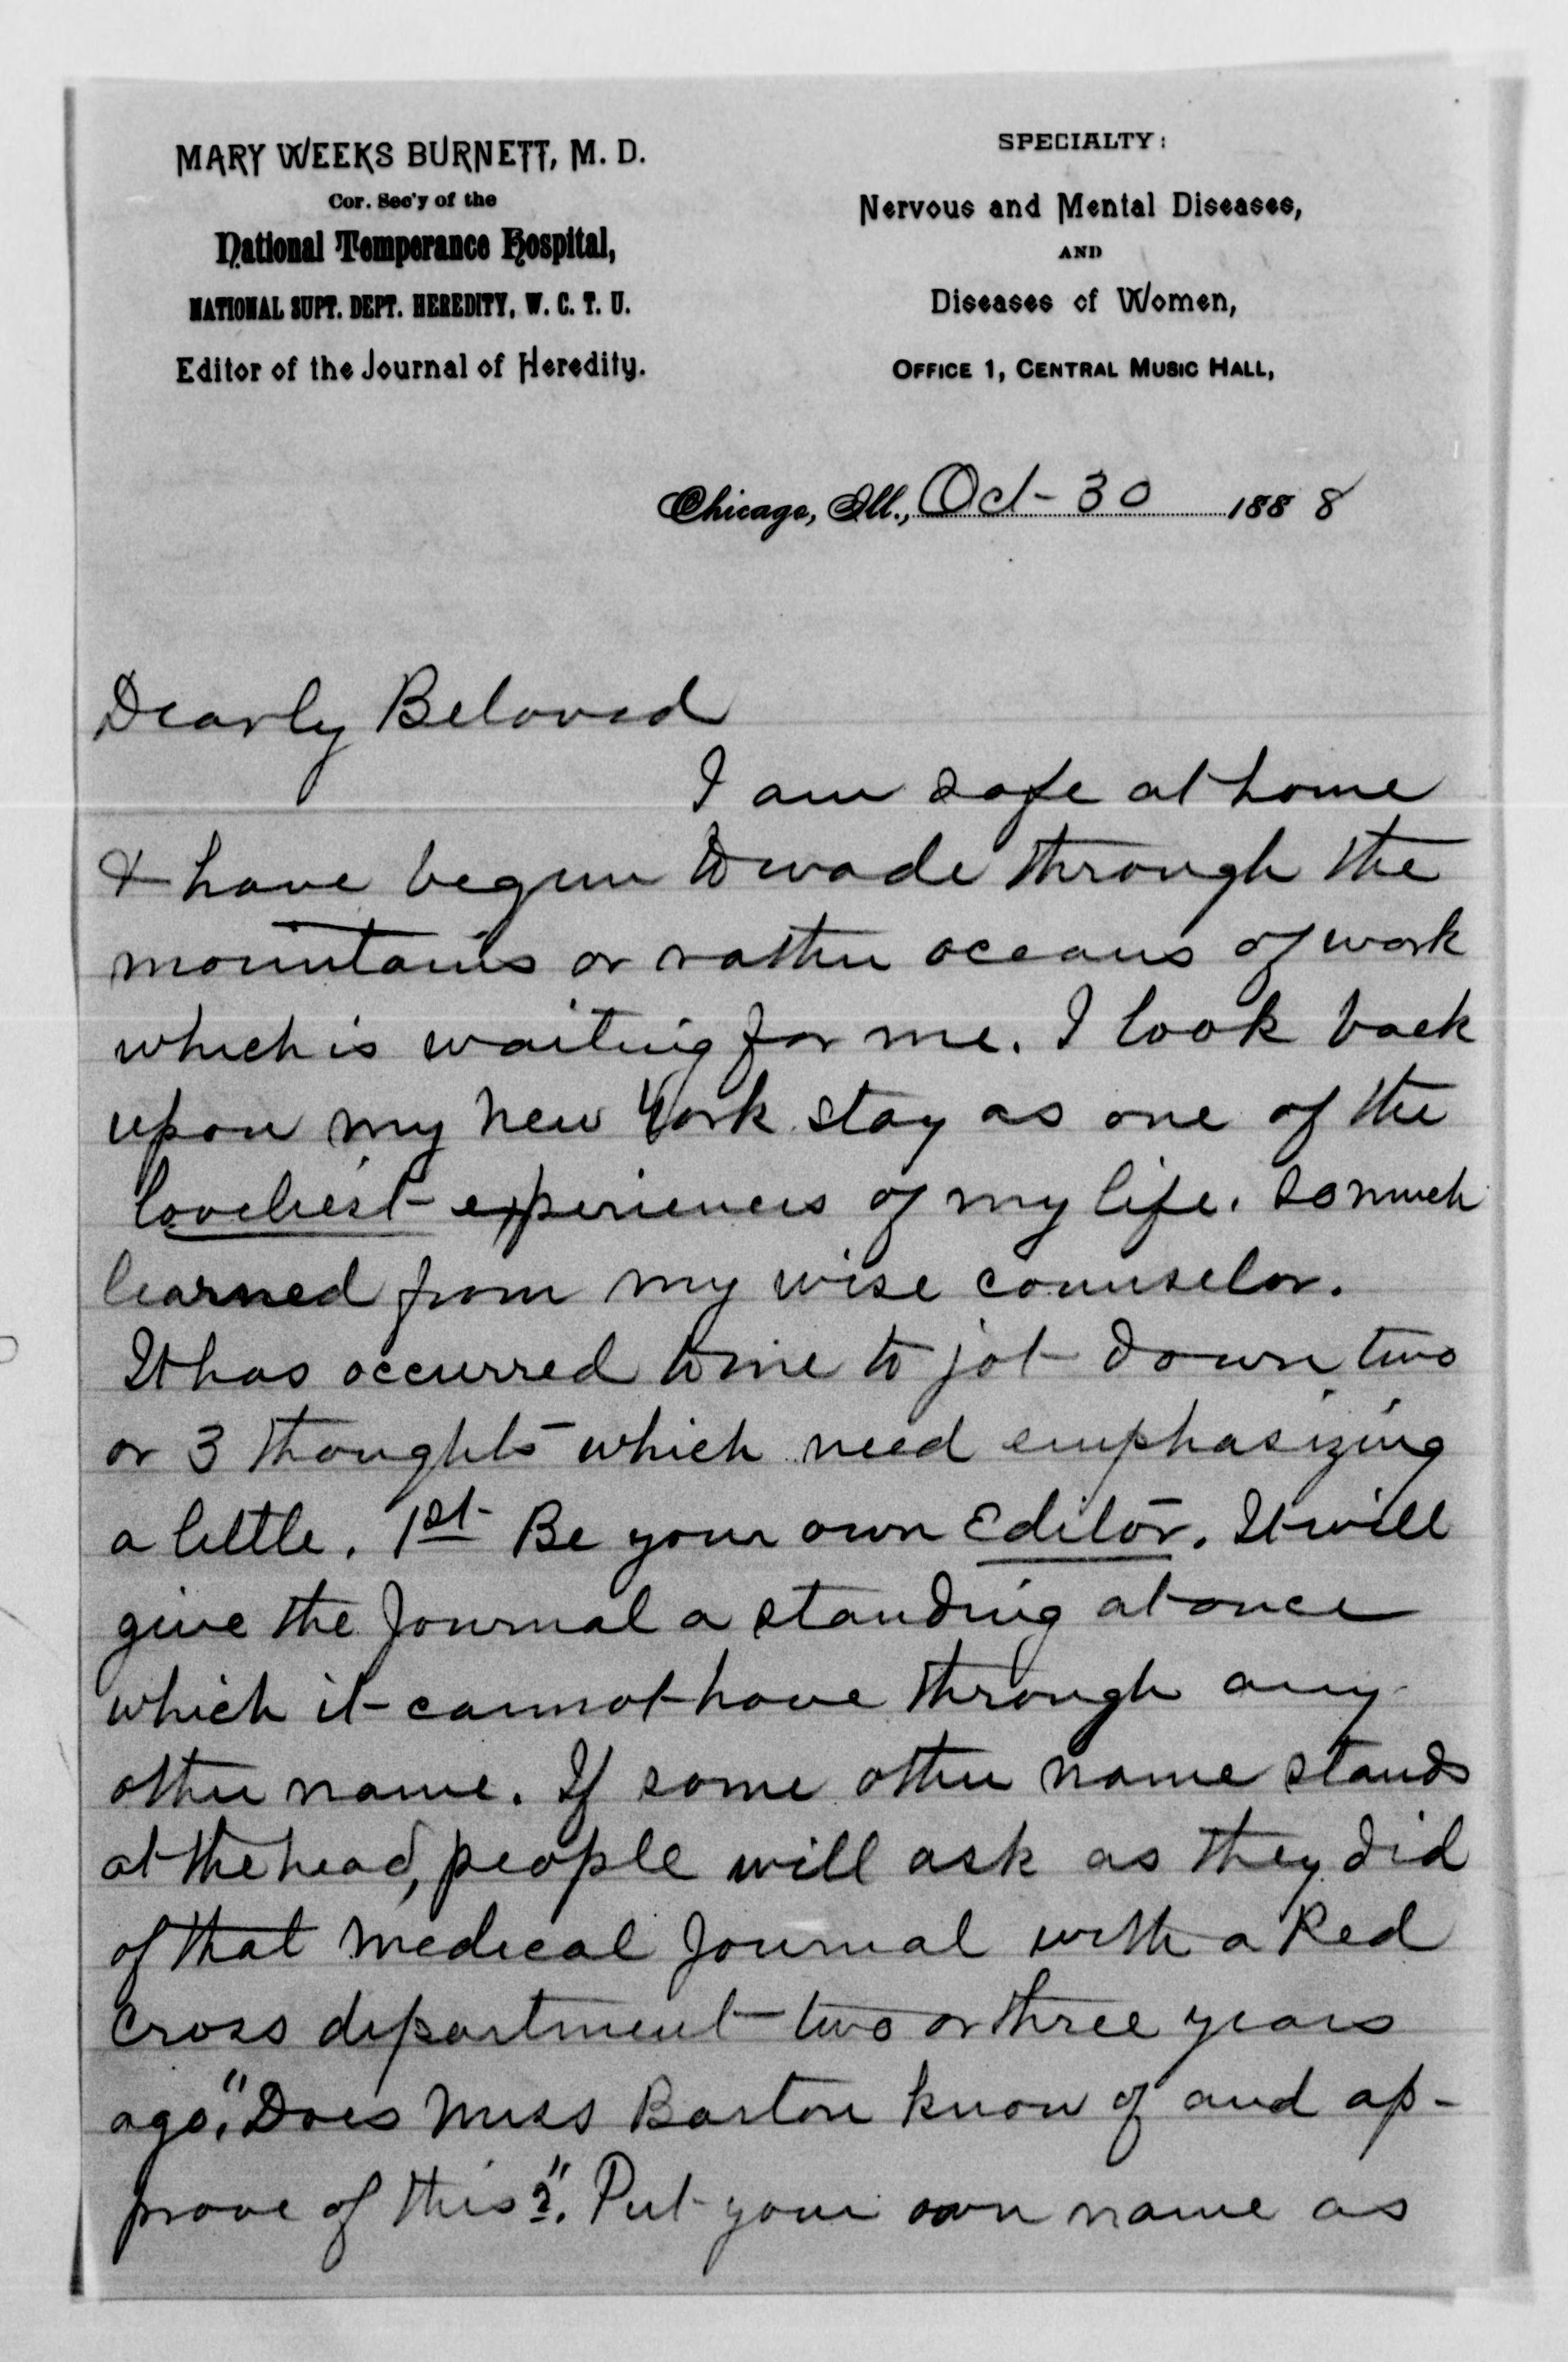 MARY WEEKS BURNETT, M. D.
Cor. Sec'y of the
National Temperance Hospital,
NATIONAL SUPT. DEPT. HEREDITY, W. C. T. U.
Editor of the Journal of Heredity.
SPECIALTY:
Nervous and Mental Diseases,
AND
Diseases of Women,
OFFICE 1, CENTRAL MUSIC HALL,
Chicago, Ill., Oct- 30 1888
Dearly Beloved
I am safe at home
& have begun to wade through the
mountains or rather oceans of work
which is waiting for me. I look back
upon my New York stay as one of the
loveliest experiences of my life. So much
learned from my wise counselor.
It has occurred to me to jot down two
or 3 thoughts which need emphasizing
a little. 1st Be your own Editor. It will
give the Journal a standing at once
which it cannot have through any
other name. If some other name stands
at the head, people will ask as they did
of that Medical Journal with a Red
Cross department two or three years
ago. "Does Miss Barton know of and ap-
prove of this?". Put your own name as